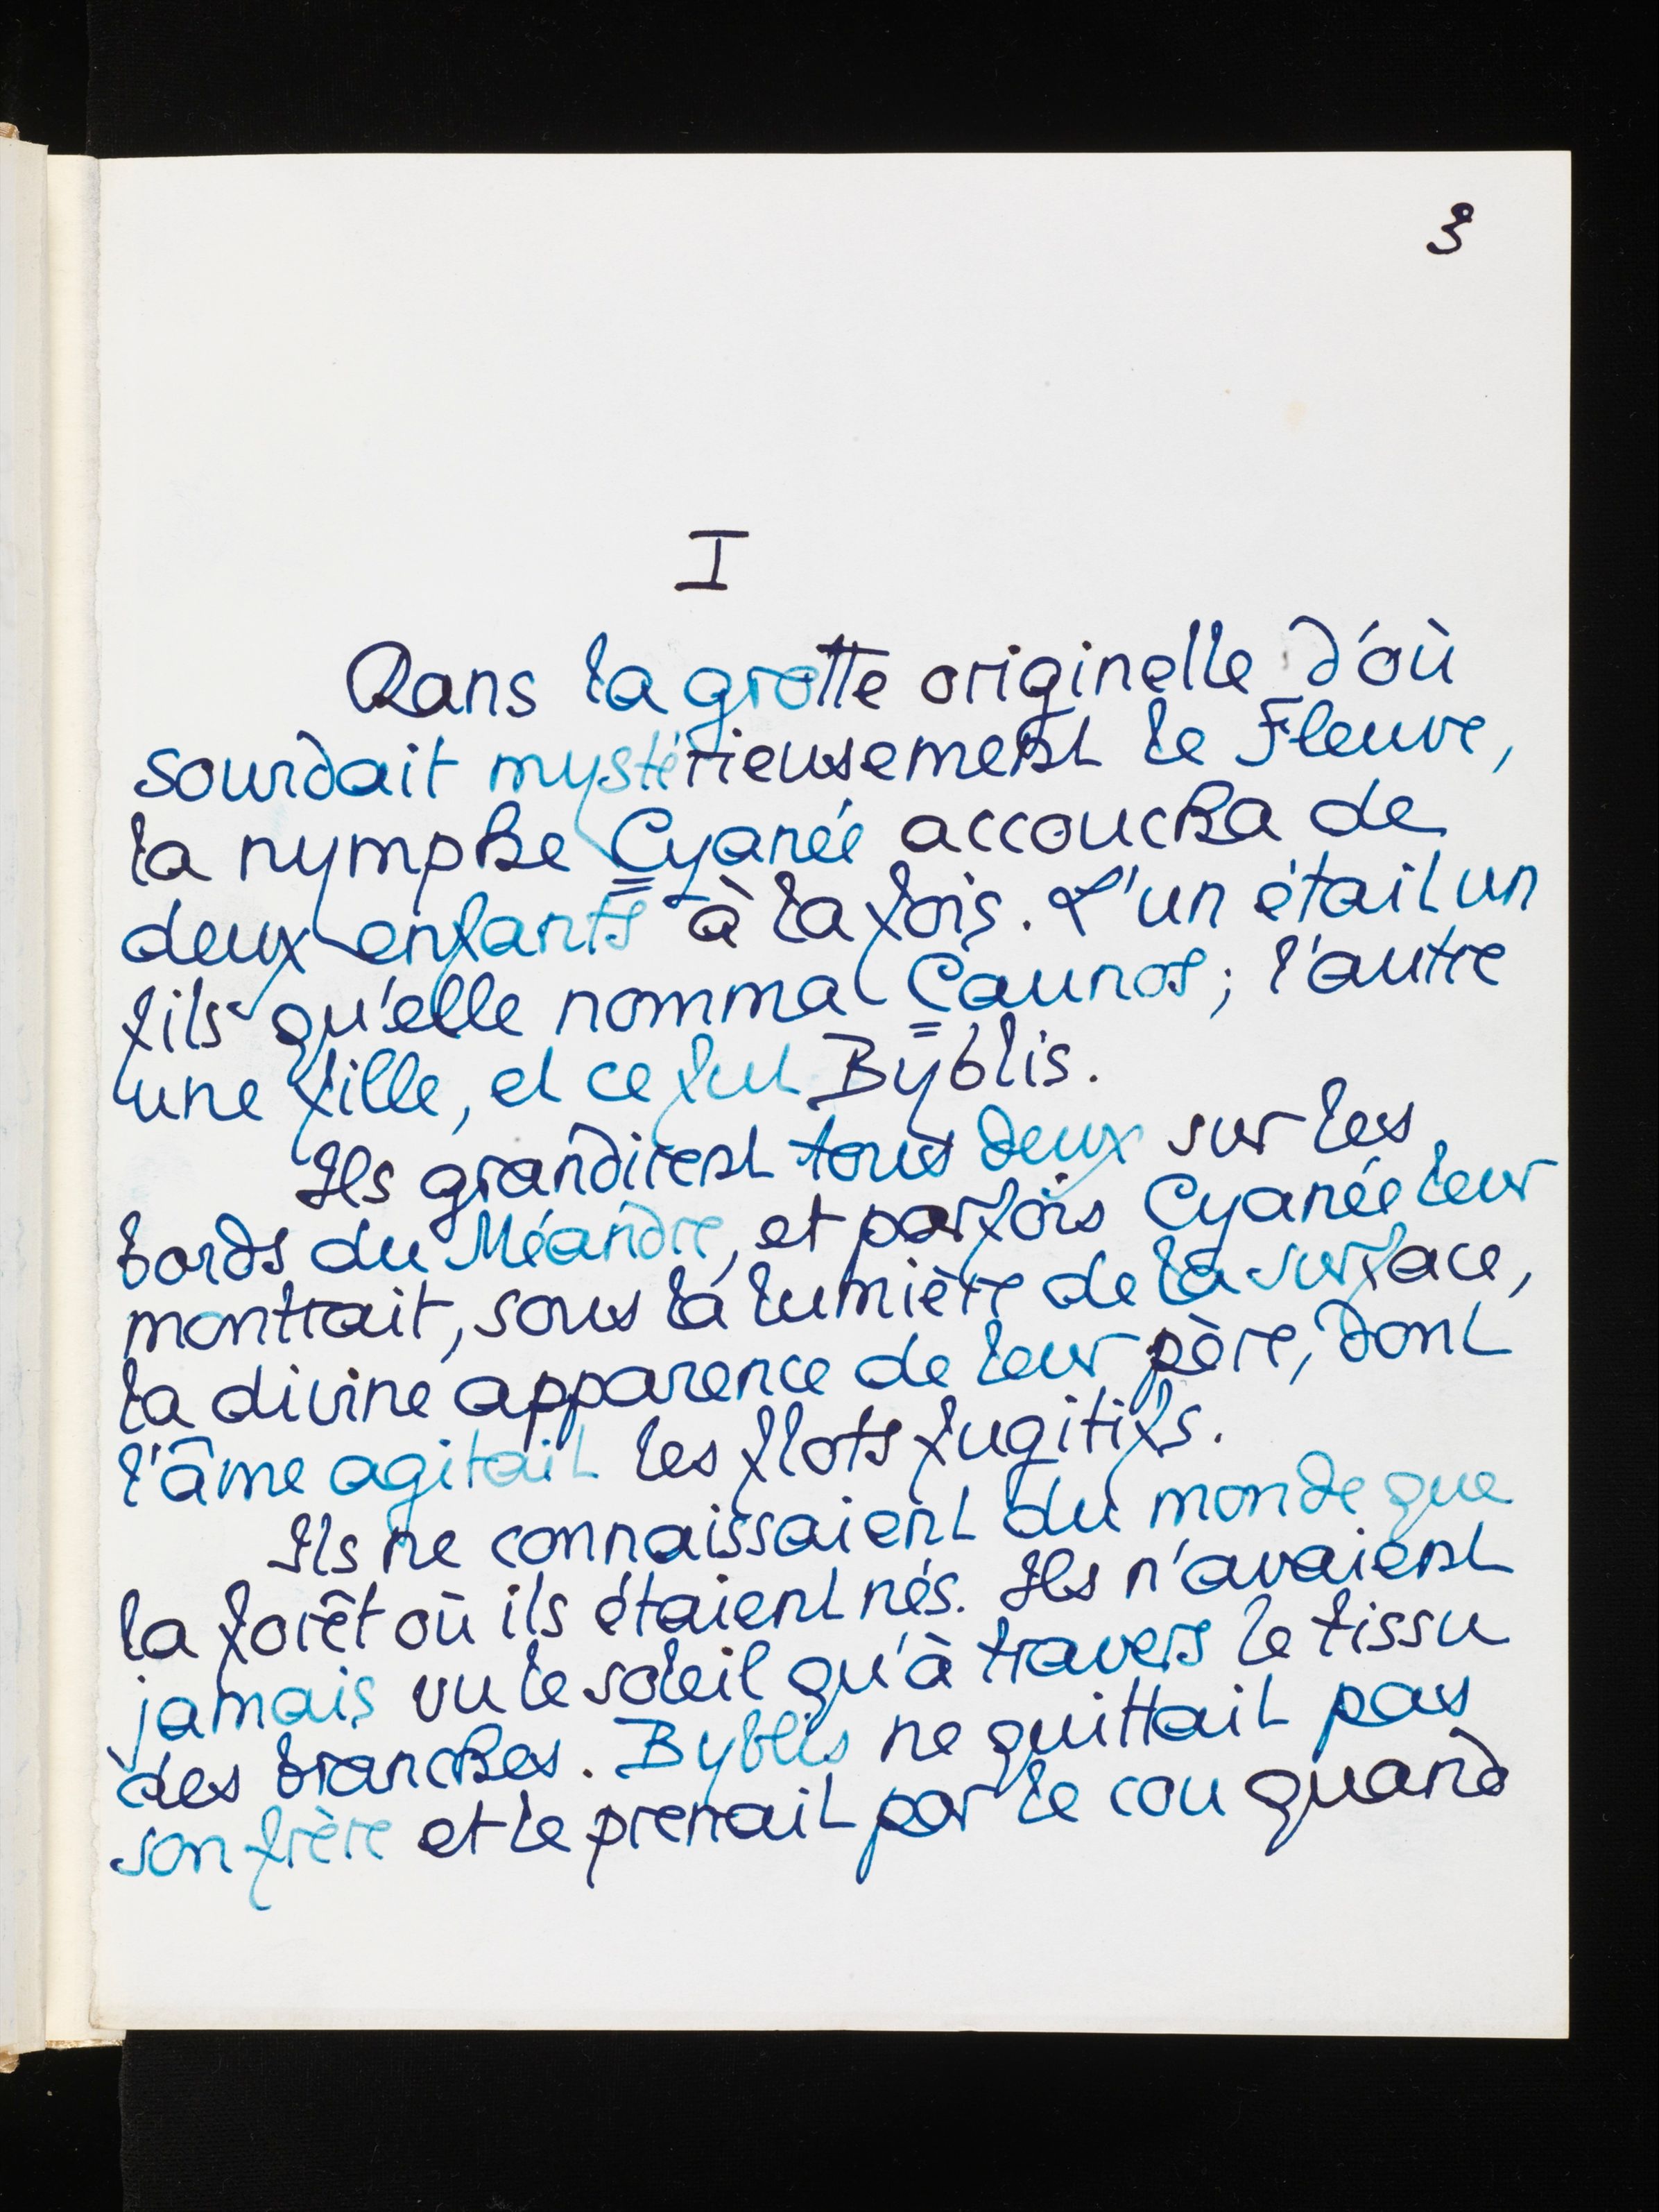 3
I
Dans la grotte originelle d'où
sourdait mystérieusement le Fleuve,
la nymphe Cyanée accoucha de
deux enfants à la fois. L'un était un
fils qu'elle nomma Caunos ; l'autre
une fille, et ce fut Byblis.
Ils grandirent tous deux sur les
bords du Méandre, et parfois Cyanée leur
montrait, sous la lumière de la surface,
la divine apparence de leur père, dont
l'âme agitait les flots fugitifs.
Ils ne connaissaient du monde que
la forêt où ils étaient nés. Ils n'avaient
jamais vu le soleil qu'à travers le tissu
des branches. Byblis ne quittait pas
son frère et le prenait par le cou quand